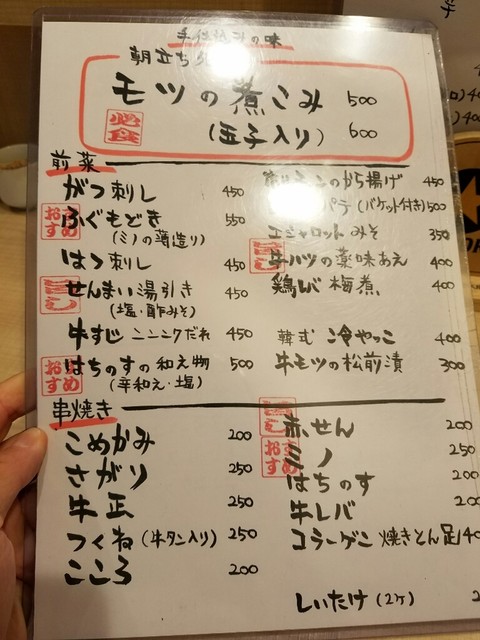 手仕込みの味
朝立ち
モツの煮こみ 500
(玉子入り) 600
必食
前菜
がつ刺し 450
おすすめ
ふぐもどき 550
(ミノの薄造り)
はつ刺し 450
せんまい湯引き 450
(塩・酢みそ)
牛すじ ニンニクだれ 450
おすすめ
はちのすの和え物 500
(辛和え・塩)
のから揚げ 450
パテ(バケット付き) 500
エシャロット みそ 350
牛ハツの薬味あえ 400
鶏レバ 梅煮 400
韓式 冷やっこ 400
牛モツの松前漬 300
串焼き
こめかみ 200
さがり 250
牛正 250
つくね(牛タン入り) 250
こころ 200
赤せん 200
おすすめ
ミノ 250
はちのす 200
牛レバ 200
コラーゲン 焼きとん足
しいたけ(2ケ)